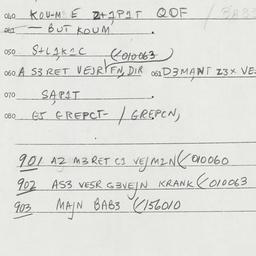 040 KOUM E Z+1P1T QOF / BAB3
041 — BUT KOUM
050 S+L1K2C (/010063
060 A S3 RET VEJR FN, DIR 061 D3MANT Z3X VE
070 SAP1T
080 ET GREPCT- / GREPCN,
901 AZ M3 RET C1 VEJMIN (/010060
902 AS3 VESR G3VEJN KRANK (/010063
903 MAJN BAB3 (/156010